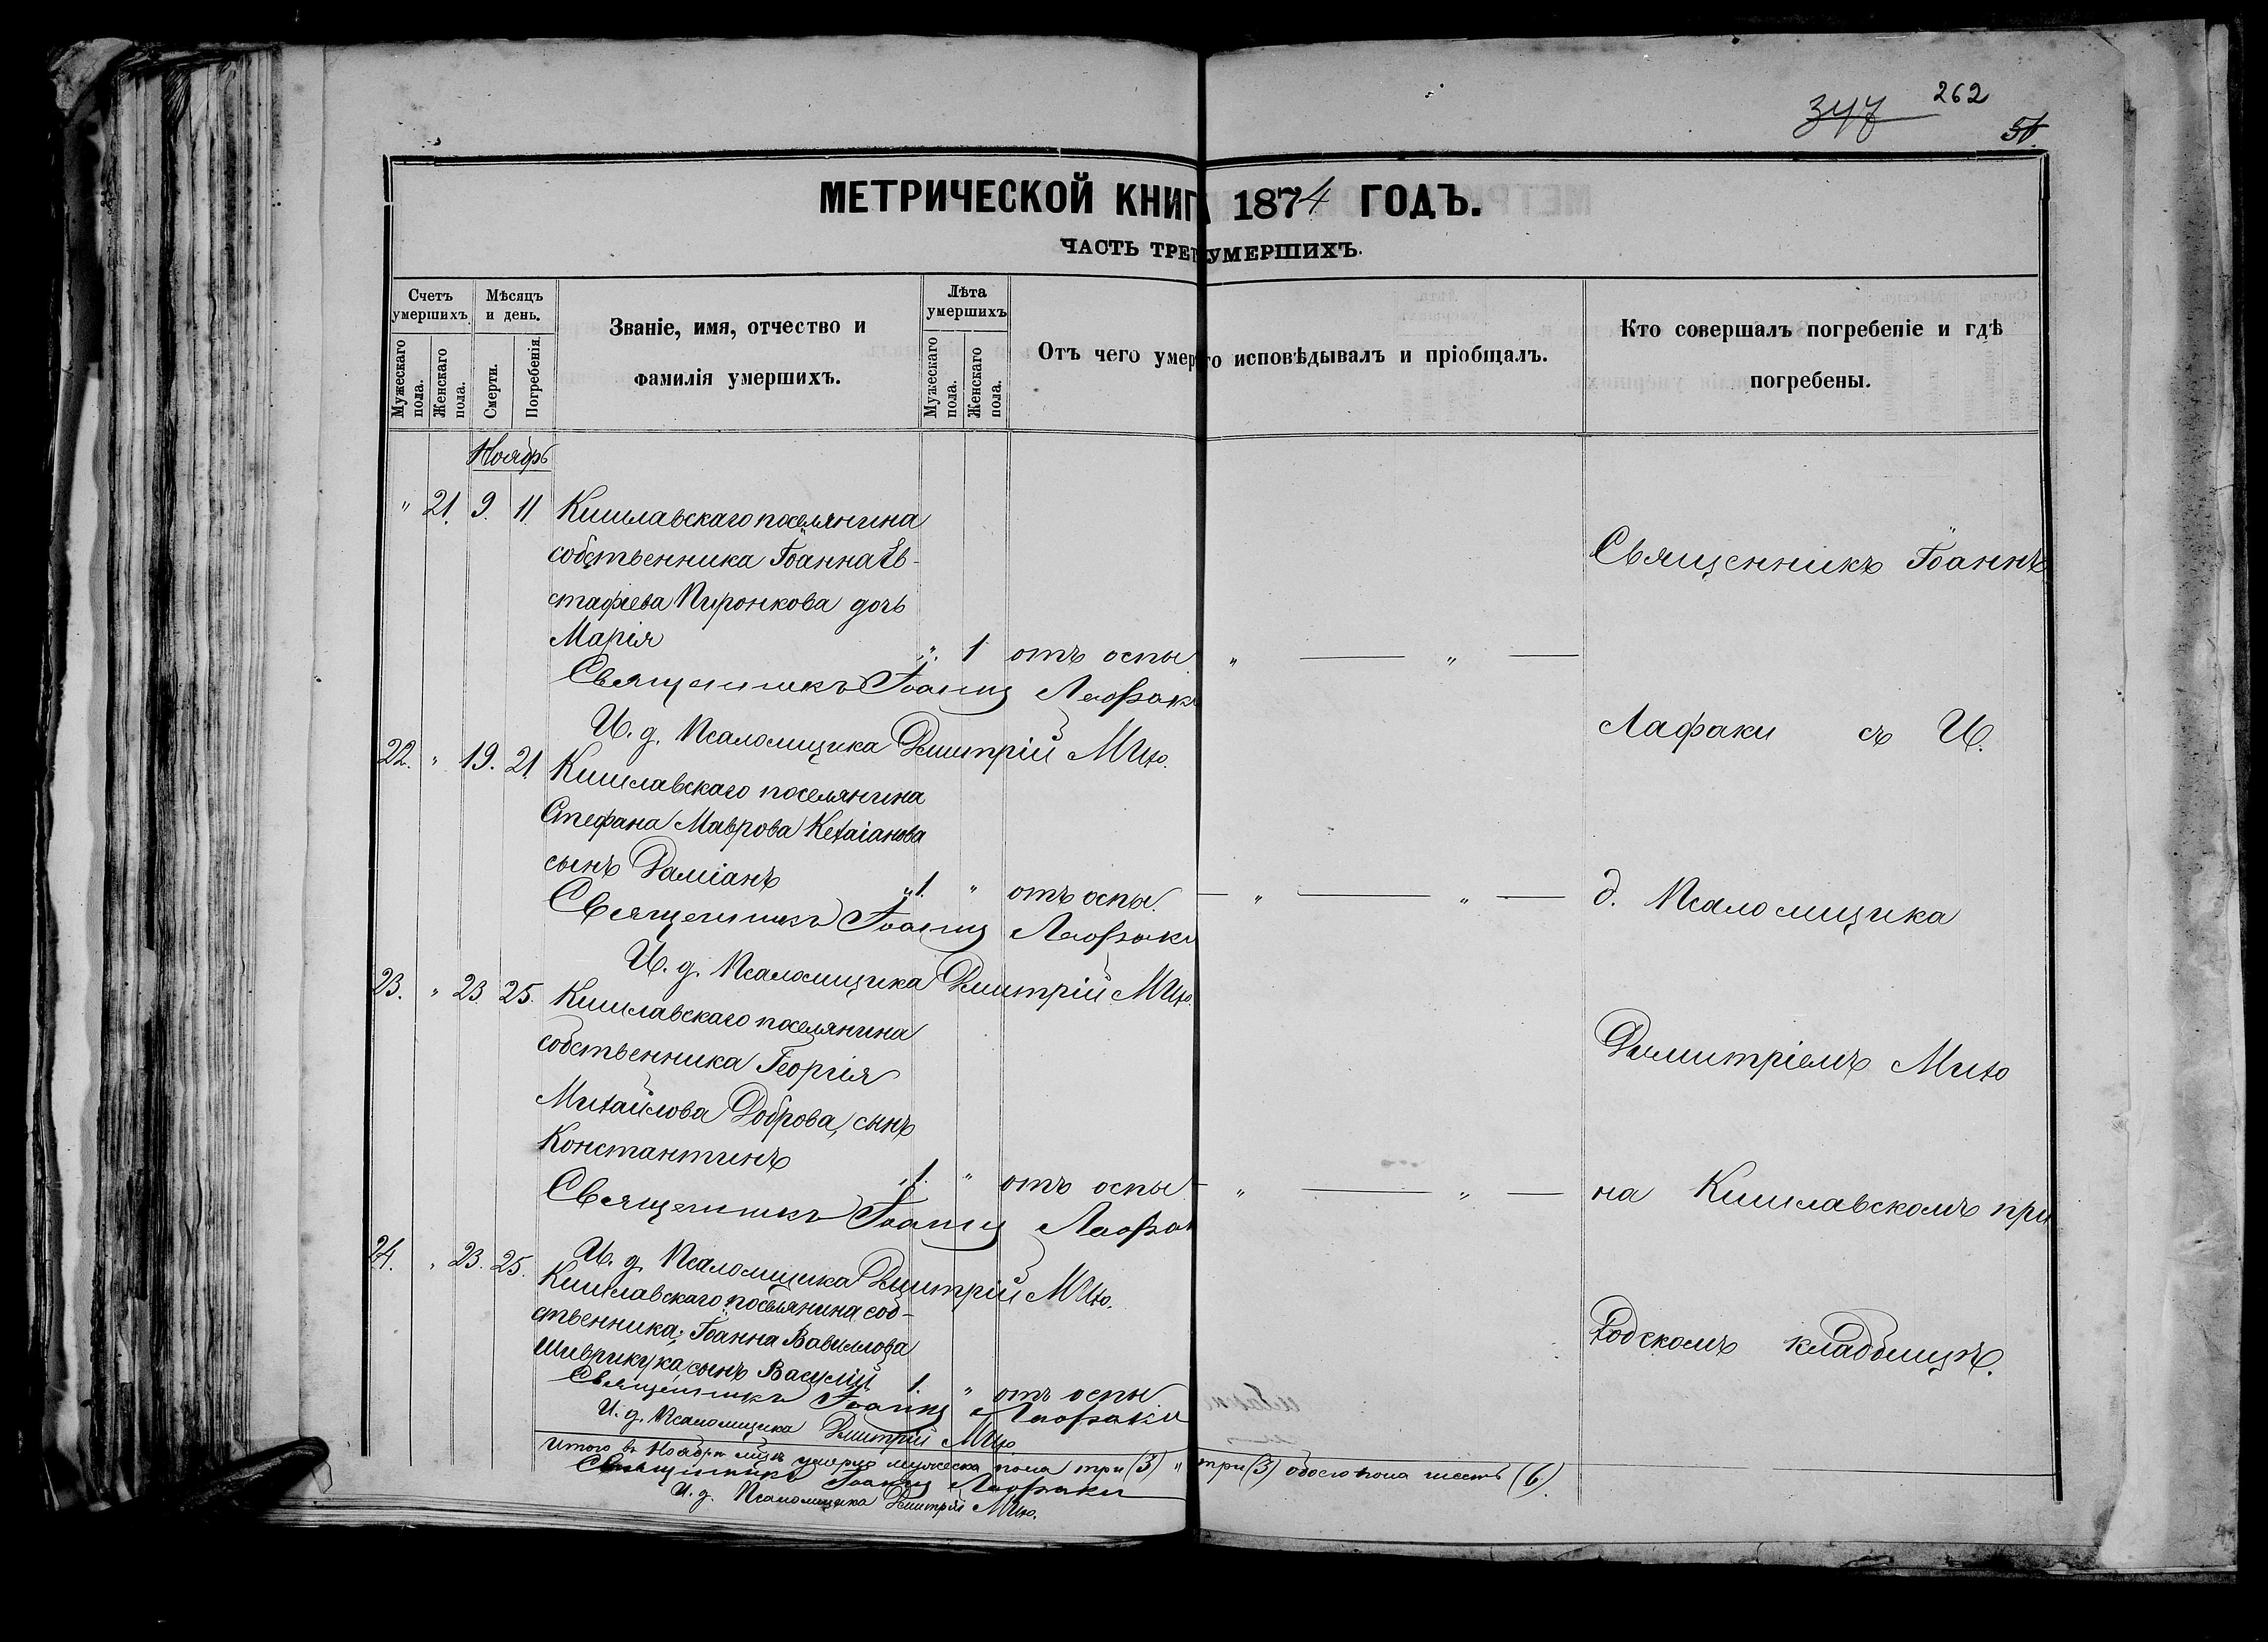 262
347
51.
МЕТРИЧЕСКОЙ КНИГ 1874 ГОДЪ.
ЧАСТЬ ТРЕТ УМЕРШИХЪ.
Счетъ умершихъ.
Мужескаго пола.
Женскаго пола.
Мѣсяцъ и день.
Смерти.
Погребенія.
Званіе, имя, отчество и
фамилія умершихъ.
Лѣта умершихъ
Мужескаго пола.
Женскаго пола.
Отъ чего умер го исповѣдывалъ и пріобщалъ.
Кто совершалъ погребеніе и гдѣ
погребены.
Ноябрь
" 21. 9. 11. Кишлавскаго поселянина
собственника Іоанна Ев-
стафіева Пиронкова дочь
Марія " 1 отъ оспы " — " —
Священникъ Іоаннъ Лафаки
И. д. Псаломщика Дмитрій Михо.
22. " 19. 21 Кишлавскаго поселянина
Стефана Маврова Кехаіанова
сынъ Даміанъ 1. " отъ оспы. — " — " —
Священникъ Іоаннъ Лафаки
И. д. Псаломщика Дмитрій Михо.
23. " 23. 25. Кишлавскаго поселянина
собственника Георгія
Михайлова Доброва, сынъ
Константинъ 1. " отъ оспы — " — " —
Священникъ Іоаннъ Лафак
И. д. Псаломщика Дмитрій Михо.
24. " 23. 25. Кишлавскаго поселянина соб-
ственника Іоанна Вавиллова
Шиврикука, сынъ Василій 1. " отъ оспы
Священникъ Іоаннъ Лафаки
И. д. Псаломщика Дмитрій Михо
Итого въ Ноябрѣ мцѣ умерло мужеска пола три (3) " три (3) обоего пола шесть (6).
Священникъ Іоаннъ Лафаки
И. д. Псаломщика Дмитрій Михо.
Священникъ Іоаннъ
Лафаки съ И.
д. Псаломщика
Димитріемъ Михо
на Кишлавскомъ при
ходскомъ кладбищѣ.